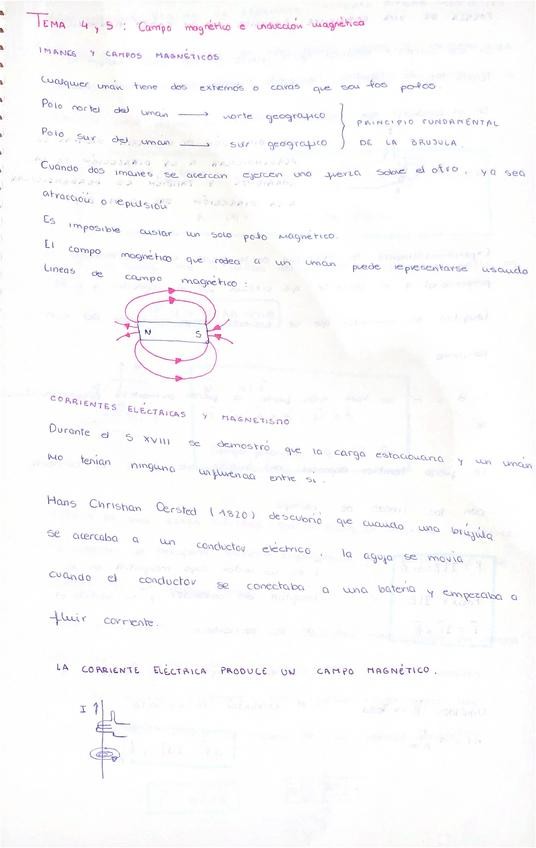 TEMA 4 y 5 : Campo magnético e inducción magnética
IMANES Y CAMPOS MAGNÉTICOS
Cualquier imán tiene dos extremos o caras que son los polos.
Polo norte del iman → norte geográfico
PRINCIPIO FUNDAMENTAL
Polo sur del iman → sur geográfico
DE LA BRUJULA.
Cuando dos imanes se acercan ejercen una fuerza sobre el otro, ya sea
atracción o repulsión
Es imposible aislar un solo polo magnético.
El campo magnético que rodea a un imán puede representarse usando
líneas de campo magnético :
N S
CORRIENTES ELÉCTRICAS Y MAGNETISMO
Durante el S XVIII se demostró que la carga estacionaria y un imán
no tenían ninguna influencia entre sí.
Hans Christian Oersted (1820) descubrió que cuando una brújula
se acercaba a un conductor eléctrico, la aguja se movía
cuando el conductor se conectaba a una batería y empezaba a
fluir corriente.
LA CORRIENTE ELÉCTRICA PRODUCE UN CAMPO MAGNÉTICO.
I